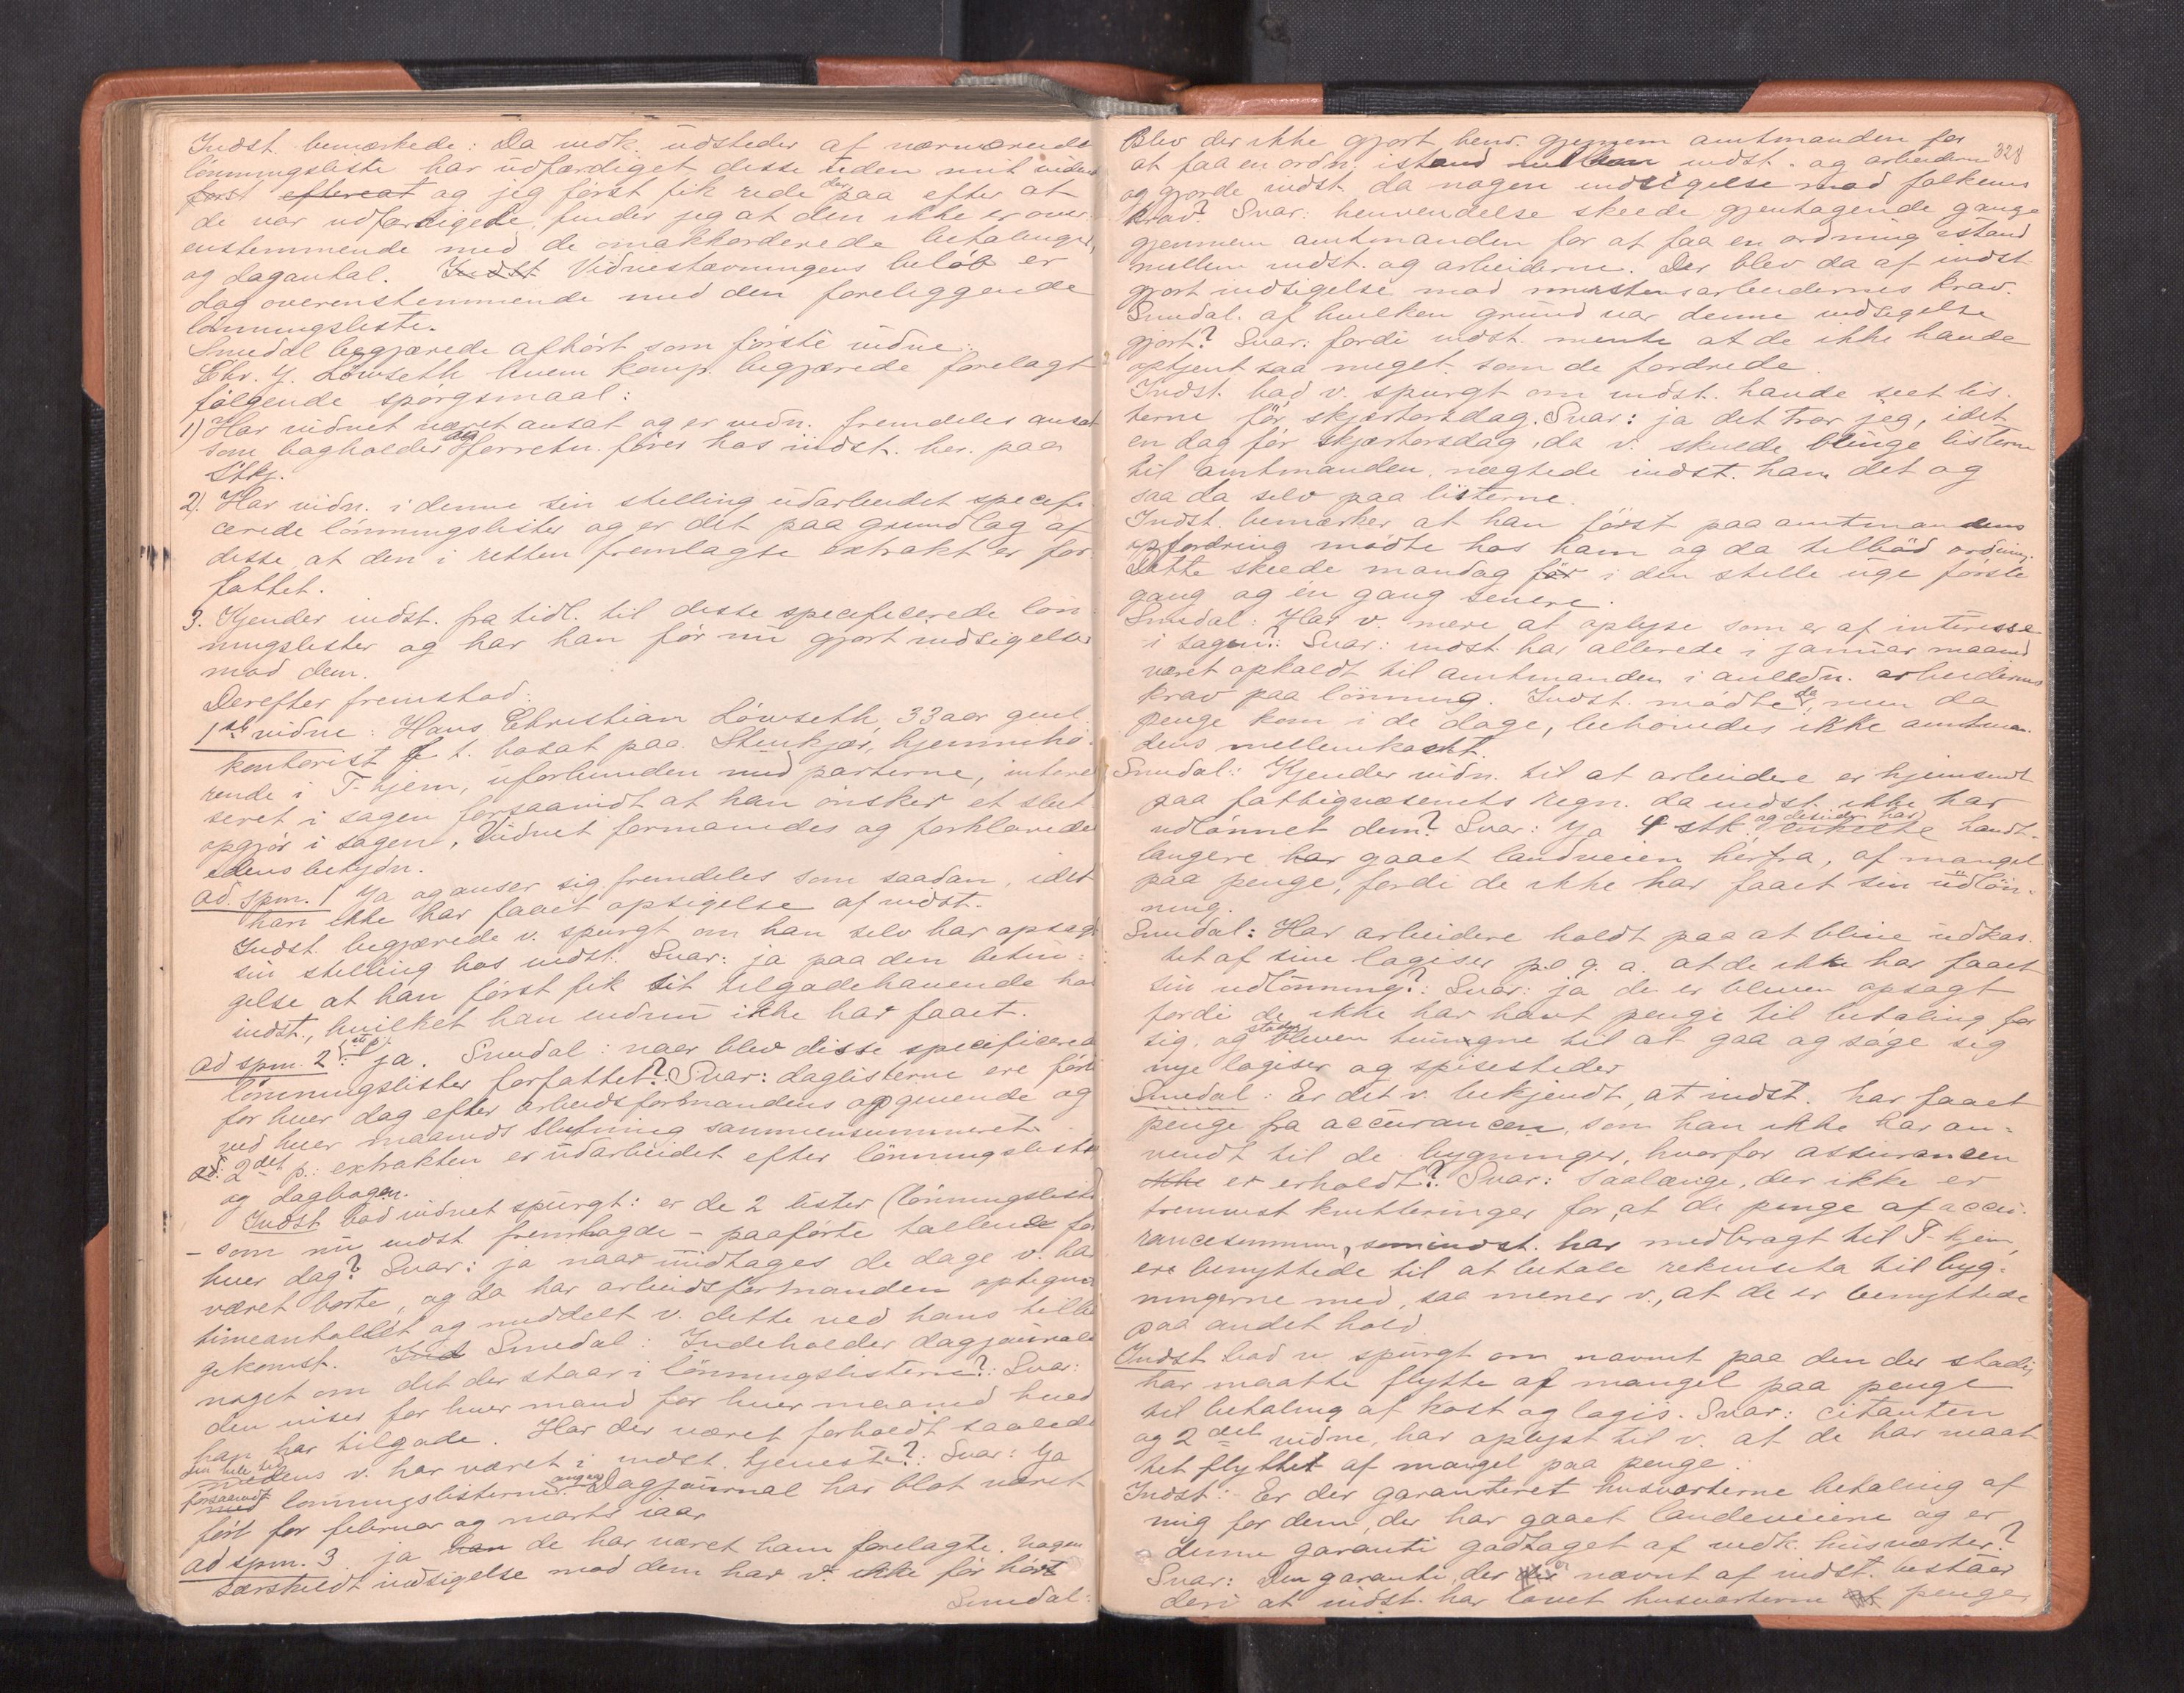 Indst. bemærkede: Da vedk. udsteder af nærværende
lönningsliste har udfærdiget disse uden mit vidende
först eftereat og jeg först fik rede der paa efter at
de var udfærdigede, finder jeg at den ikke er over-
ensstemmende med de omakkorderede betalinger,
og dagantal. Indst. Vidnestævningens belöb er
dog overenstemmende med den foreliggende
lönningsliste.
Smedal begjærede afhört som förste vidne:
Chr. Y. Löwseth hvem komp. begjærede forelagt
fölgende spörgsmaal:
1) Har vidnet været ansat og er vidn. fremdeles ansat
som bogholder og forretn. förer hos indst. her paa
Stkj.
2) Har vidn. i denne sin stelling udarbeidet specifi-
cerede lönningslister og er det paa grundlag af
disse at den i retten fremlagte extrakt er for-
fattet.
3. Kjender indst. fra tidl. til disse specificerede lön-
ningslister og har han för nu gjort indsigelser
mod dem.
Derefter fremstod:
1ste vidne: Hans Christian Löwseth, 33 aar gml.
kontorist f. t. bosat paa Stenkjær, hjemmehö-
rende i T-hjem, uforbunden med parterne, intere-
seret i sagen forsaavidt at han önsker et slut-
opgjör i sagen. Vidnet formanedes og forklarede
edens betydn.
ad. spm. 1 Ja og anser sig fremdeles som saadan, idet
han ikke har faaet opsigelse af indst.
Indst. begjærede v. spurgt om han selv har opsagt
sin stelling hos indst. Svar: ja paa den betin-
gelse at han först fik sit tilgodehavende hos
indst., hvilket han endnu ikke har faaet.
ad spm. 2 1ste p. ja. Smedal: naar blev disse specificerede
lönningslister forfattet? Svar: daglisterne ere förte
for hver dag efter arbeidsformandens opgivende og
ved hver maaneds slutning sammensummeret.
ad. 2det p.: extrakten er udarbeidet efter lönningslister
og dagbogen.
Indst bad vidnet spurgt: er de 2 lister (lönningslister
- som nu indst. fremlagde - paaförte tallene for
hver dag? Svar: ja naar undtages de dage v. har
været borte, og da har arbeidsformanden optegnet
timeantallet og meddelt v. dette ved hans tilba-
gekomst. Ind Smedal: Indeholder dagjournalen
noget om det der staar i lönningslisterne?: Svar:
den viser for hver mand for hver maaned hvad
han har tilgode. Har der været forholdt saaledes
den hele tid medens v. har været i indst. tjeneste?: Svar: Ja
forsaavidt med lönningslisterne angaar. Dagjournal har blot været
fört for februar og marts iaar
ad spm. 3 ja han de har været ham forelagte. Nogen
særskildt indsigelse mod dem har v. ikke för hört
Smedal:
328
Blev der ikke gjort henv. gjennem amtmanden for
at faa en ordn. istand mellem indst. og arbeiderne
og gjorde indst. da nogen indsigelse mod folkenes
krav? Svar: henvendelse skeede gjentagende gange
gjennem amtmanden for at faa en ordning istand
mellem indst. og arbeiderne. Der blev da af indst.
gjort indsigelse mod murstensarbeidernes krav.
Smedal. af hvilken grund var denne indsigelse
gjort? Svar: fordi indst. mente at de ikke havde
optjent saa meget som de fordrede.
Indst. bad v. spurgt om indst. havde seet lis-
terne för skjærtorsdag. Svar: ja det tror jeg, idet
en dag för skjærtorsdag, da v. skulde bringe listerne
til amtmanden, nægtede indst. ham det og
saa da selv paa listerne.
Indst. bemærker at han först paa amtmandens
opfordring mödte hos ham og da tilböd ordning.
Dette skeede mandag för i den stille uge förste
gang og én gang senere.
Smedal: Har v. mere at oplyse som er af interesse
i sagen?: Svar: indst. har allerede i januar maaned
været opkaldt til amtmanden i anledn. arbeidernes
krav paa lönning. Indst. mödte da, men da
penge kom i de dage, behövedes ikke amtman-
dens mellemkomst.
Smedal: Kjender vidn. til at arbeidere er hjemsendt
paa fattigvæsenets regn. da indst. ikke har
udlönnet dem? Svar: Ja 4 stk. og desuden har enkelte handt-
langere har gaaet landveien herfra, af mangel
paa penge, fordi de ikke har faaet sin udlön-
ning.
Smedal: Har arbeidere holdt paa at blive udkas-
tet af sine logiser p. g. a. at de ikke har faaet
sin udlönning?: Svar: ja de er bleven opsagt
fordi de ikke har havt penge til betaling for
sig, og bleven tvungne til at gaa og söge sig
nye logiser og spisesteder
Smedal: Er det v. bekjendt, at indst. har faaet
penge fra accurancen, som han ikke har an-
vendt til de bygninger, hvorfor assurancen
ikke er erholdt?: Svar: Saalænge, der ikke er
fremvist kvitteringer for, at de penge af accu-
rancesummen, som indst. har medbragt til T-hjem,
ere benyttede til at betale rekvisita til byg-
ningerne med, saa mener v., at de er benyttede
paa andet hold.
Indst bad v. spurgt om navnet paa den der stadig
har maatte flytte af mangel paa penge
til betaling af kost og logis. Svar: citanten
og 2det vidne, har oplyst til v. at de har maat-
tet flyttet af mangel paa penge.
Indst: Er der garanteret husværterne betaling af
mig for dem, der har gaaet landeveiene og er
denne garanti godtaget af vedk. husværter?
Svar: Den garanti, der er nævnt af indst. bestaar
deri at indst. har lovet husværterne penge